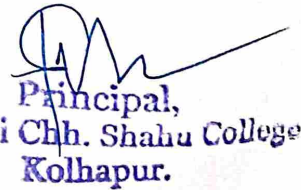 Principal,
i Chh. Shahu College
Kolhapur.